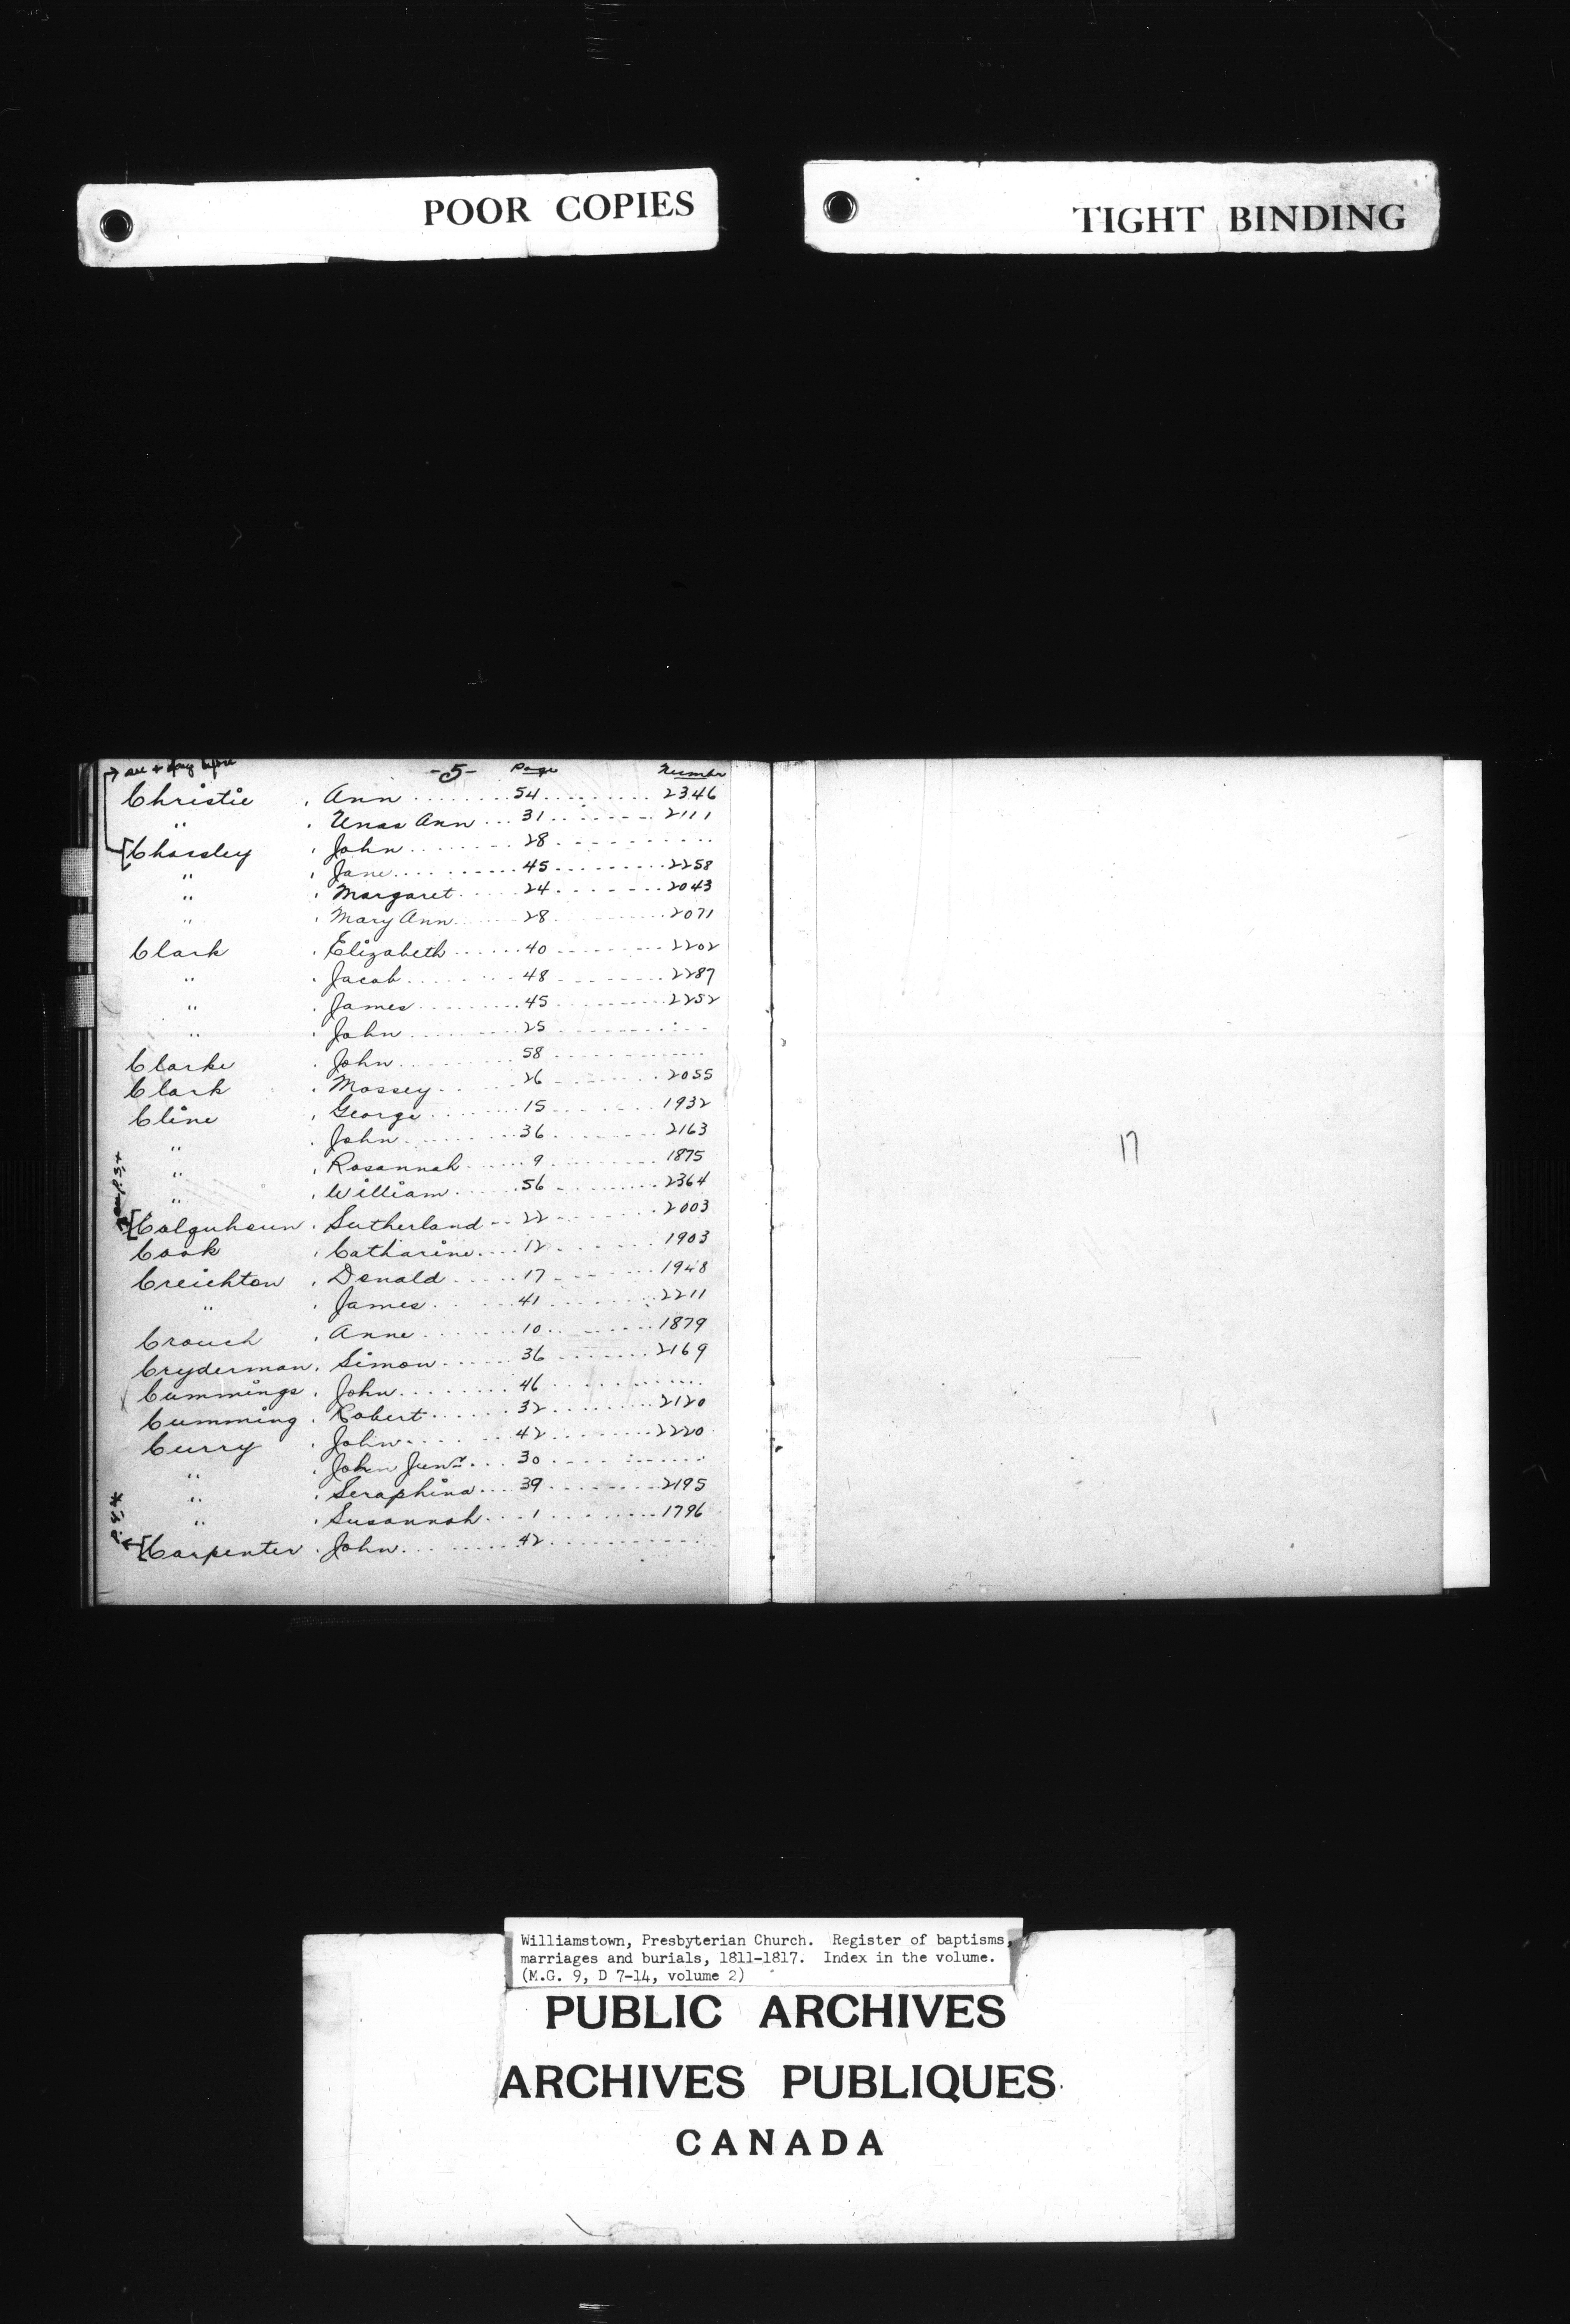 POOR COPIES
TIGHT BINDING
-5- Page Number
Christie , Ann ........ 54 ......... 2346
" , Unas Ann ... 31 ....... 2111
[Chassley , John ........ 28 ..........
" , Jane ......... 45 ......... 2258
" , Margaret ..... 24 ....... 2043
" , Mary Ann ..... 28 ......... 2071
Clark , Elizabeth ...... 40 ........ 2202
" , Jacob ........ 48 ........ 2287
" , James ......... 45 ........ 2252
" , John ........ 25 ..........
Clarke , John ........ 58 ..........
Clark , Massey ...... 26 ........ 2055
Cline , George ........ 15 ....... 1932
" , John ........ 36 ........ 2163
" , Rosannah ..... 9 ......... 1875
" , William ..... 56 ......... 2364
[Colquhoun , Sutherland -- 22 ........ 2003
Cook , Catharine .... 12 ....... 1903
Creichton , Donald ..... 17 ....... 1948
" , James ...... 41 ........ 2211
Crouch , Anne ....... 10 ........ 1879
Cryderman , Simon ...... 36 ....... 2169
Cummings , John ........ 46 ..........
Cumming , Robert ...... 32 ......... 2120
Curry , John ...... 42 ......... 2220
" , John Junr ... 30 ..........
" , Seraphina ... 39 ........ 2195
" , Susannah ... 1 ......... 1796
[Carpenter , John ........ 42 ..........
17
Williamstown, Presbyterian Church. Register of baptisms,
marriages and burials, 1811-1817. Index in the volume.
(M.G. 9, D 7-14, volume 2)
PUBLIC ARCHIVES
ARCHIVES PUBLIQUES
CANADA